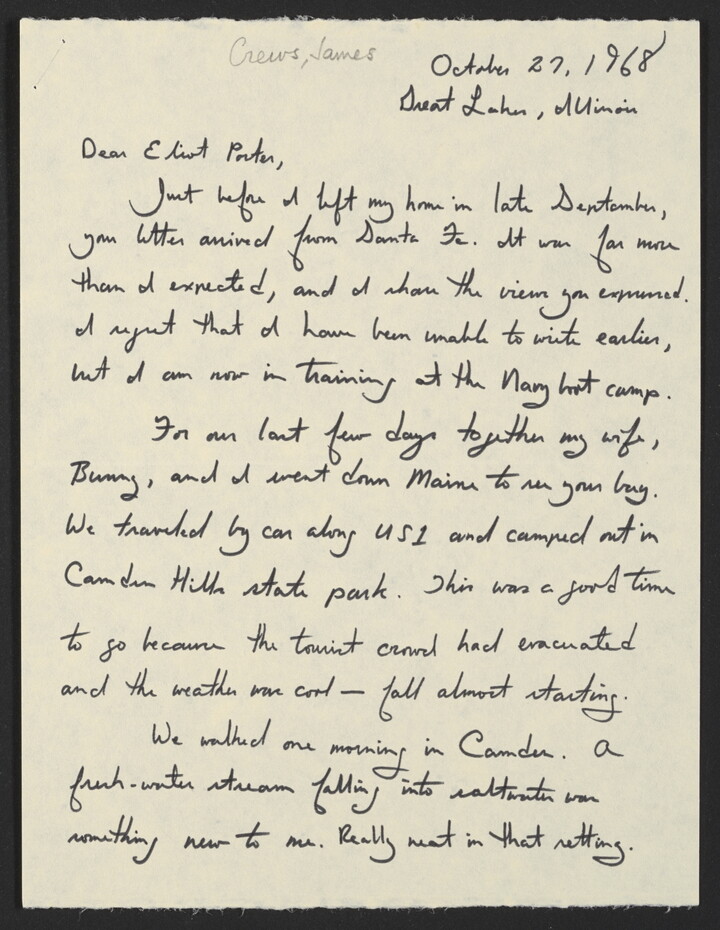 Crews, James
October 27, 1968
Great Lakes, Illinois
Dear Eliot Porter,
Just before I left my home in late September,
your letter arrived from Santa Fe. It was far more
than I expected, and I share the views you expressed.
I regret that I have been unable to write earlier,
but I am now in training at the Navy boot camp.
For our last few days together my wife,
Bunny, and I went down Maine to see your bay.
We traveled by car along US1 and camped out in
Camden Hills state park. This was a good time
to go because the tourist crowd had evacuated
and the weather was cool — fall almost starting.
We walked one morning in Camden. A
fresh-water stream falling into saltwater was
something new to me. Really neat in that setting.